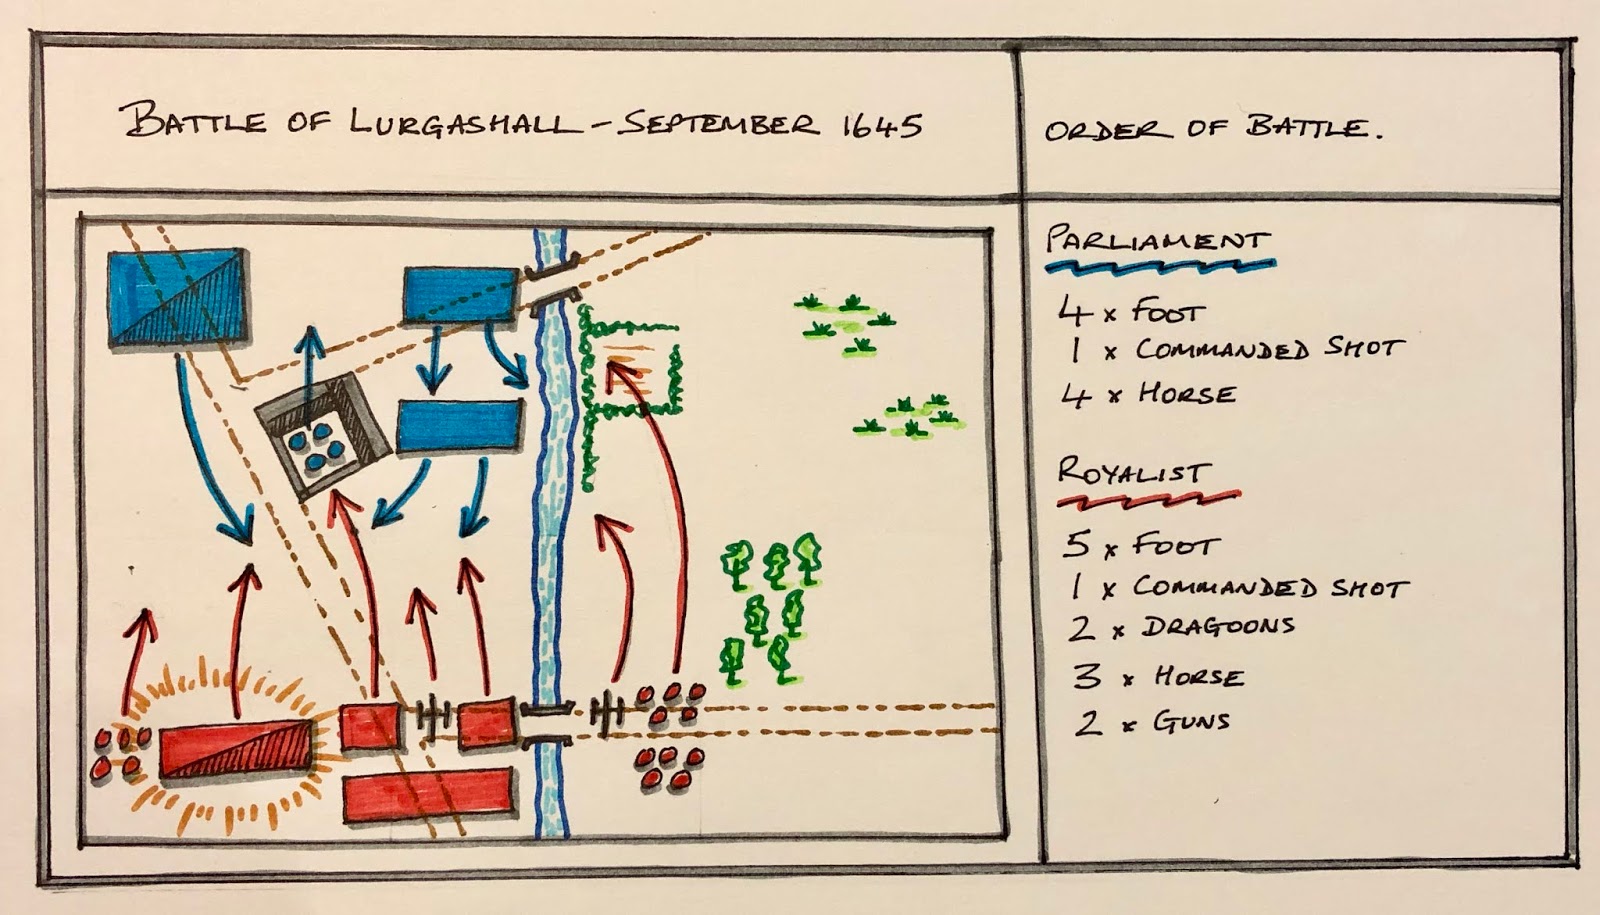 BATTLE OF LURGASHALL - SEPTEMBER 1645
ORDER OF BATTLE.
PARLIAMENT
4 x FOOT
1 x COMMANDED SHOT
4 x HORSE
ROYALIST
5 x FOOT
1 x COMMANDED SHOT
2 x DRAGOONS
3 x HORSE
2 x GUNS